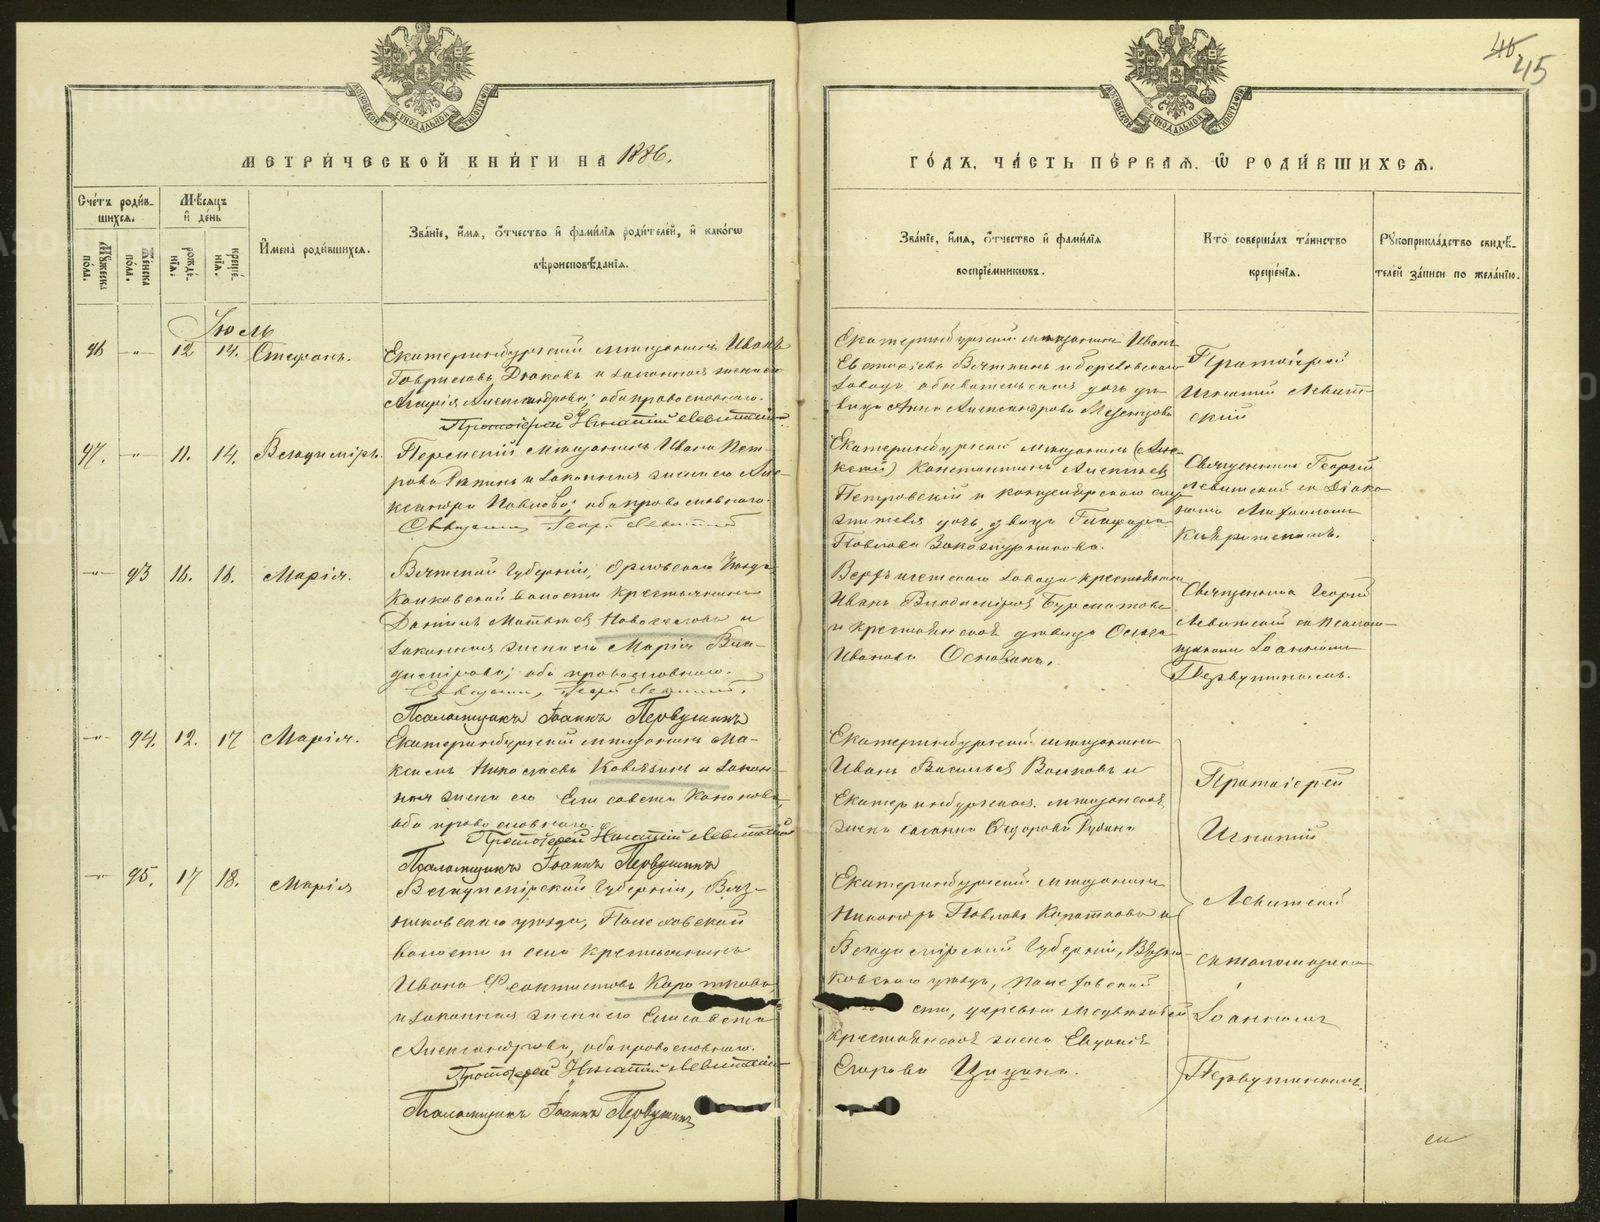 45
МЕТРИ́ЧЕСКОЙ КНИ́ГИ НА 1886.
ГО́ДЪ, ЧА́СТЬ ПЕ́РВАЯ, Ѡ РОДИ́ВШИХСЯ.
Сче́тъ роди́в-
шихся.
Му́жеска по́ла.
Же́нска по́ла.
Мѣ́сяцъ
и де́нь
рожде́нїя.
креще́нїя.
И́мена роди́вшихся.
Зва́нїе, и́мя, о́тчество и фами́лїя роди́телей, и како́гѡ
вѣроисповѣ́данїя.
Зва́нїе, и́мя, о́тчество и фами́лїя
воспрїе́мникѡвъ.
Кто̀ соверша́лъ та́инство
креще́нїя.
Рꙋкоприкла́дство свидѣ́-
телей за́писи по жела́нїю.
Іюль
96 -"- 12 14. Стефанъ.
Екатеринбургскій мѣщанинъ Иванъ
Гавриловъ Дюковъ и законная жена его
Агафія Александрова; оба православнаго.
Протоіерей Игнатій Левитскій
Екатеринбургскій мѣщанинъ Иванъ
Вяткинъ и Березовскаго
завода обывательская дочь дѣ-
вица Анна Александрова
Протоіерей
Игнатій Левит-
скій
97. -"- 11. 14. Владиміръ.
Пермскій мѣщанинъ Иванъ Пет-
ровъ и законная жена его Але-
ксандра Павлова; оба православнаго.
Священникъ Георгій Левитскій
Екатеринбургскій мѣщанинъ (Але-
ксѣй) Константинъ Алексѣевъ
Петровскій и канцелярскаго слу-
жителя дочь, дѣвица Глафира
Павлова
Священникъ Георгій
Левитскій съ Діако-
номъ Михаиломъ
-"- 93 16. 16. Марія.
Вятской Губерніи, Орловскаго Уѣзда
волости крестьянинъ
Даніилъ Матвѣевъ Новоселовъ и
законная жена его Марія Вла-
димірова; оба православнаго.
Священникъ Георгій Левитскій.
Псаломщикъ Іоаннъ Первушинъ
Верхъисетскаго завода крестьянинъ
Иванъ Владиміровъ Бурматовъ
и крестьянская дѣвица Ольга
Иванова
Священникъ Георгій
Левитскій съ псалом-
щикомъ Іоанномъ
Первушинымъ.
-"- 94. 12. 17 Марія.
Екатеринбургскій мѣщанинъ Ма-
ксимъ Николаевъ Ковязинъ и закон-
ная жена его Елисавета Кононова,
оба православнаго.
Протоіерей Игнатій Левитскій
Псаломщикъ Іоаннъ Первушинъ
Екатеринбургскій мѣщанинъ
Иванъ Васильевъ Волковъ и
Екатеринбургская мѣщанская
жена Ѳедорова
Протоіерей
Игнатій
Левитскій
съ псаломщикомъ
Іоанномъ
Первушинымъ.
-"- 95. 17 18. Марія
Владимірской Губерніи, Вяз-
никовскаго уѣзда, Палеховской
волости и села крестьянинъ
Иванъ Ѳеоктистовъ Коротковъ
и законная жена его Елисавета
Александрова, оба православнаго.
Протоіерей Игнатій Левитскій
Псаломщикъ Іоаннъ Первушинъ
Екатеринбургскій мѣщанинъ
Никаноръ Павловъ Коротковъ и
Владимірской Губерніи, Вязни-
ковскаго уѣзда, Палеховской
сти, деревни
крестьянская жена Евдокія
Егорова